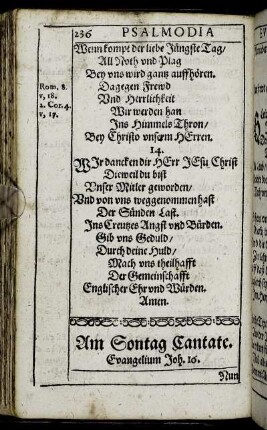 236 PSALMODIA
Wenn kompt der liebe Jüngste Tag/
All Noth vnd Plag
Bey vns wird gantz auffhören.
Dagegen Frewd
Vnd Herrlichkeit
Wir werden han
Ins Himmels Thron/
Bey Christo vnserm HErren.
Rom. 8.
v. 18.
2. Cor. 4.
v. 17.
14.
WIr dancken dir HErr JEsu Christ
Dieweil du bist
Vnser Mitler geworden/
Vnd von vns weggenommen hast
Der Sünden Last.
Ins Creutzes Angst vnd Bürden.
Gib vns Geduld/
Durch deine Huld/
Mach vns theilhafft
Der Gemeinschafft
Englischer Ehr vnd Würden.
Amen.
Am Sontag Cantate.
Evangelium Joh. 16.
Nun